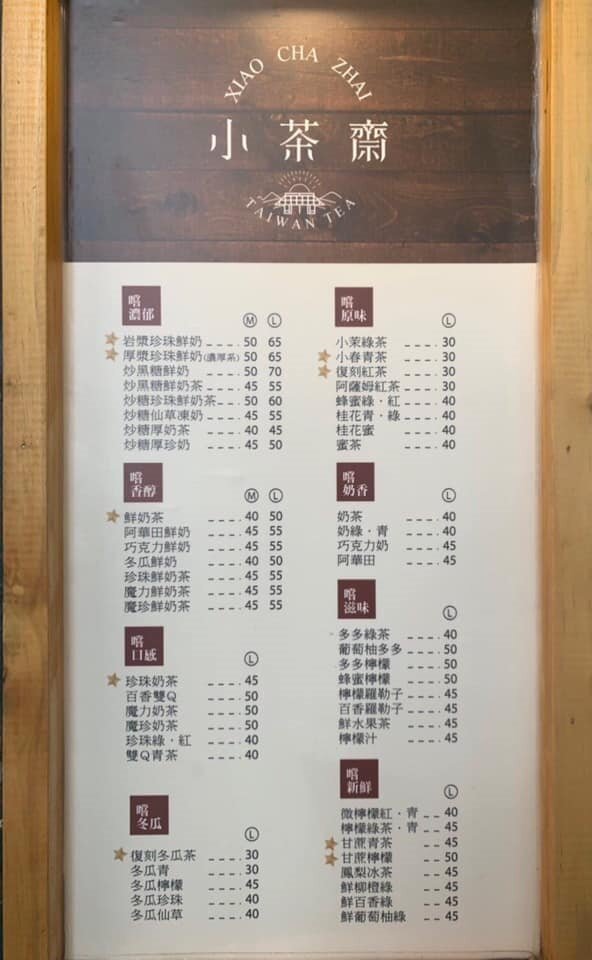 XIAO CHA ZHAI
小茶齋
TAIWAN TEA
嚐
濃郁
M L
岩漿珍珠鮮奶 50 65
厚漿珍珠鮮奶(濃厚系) 50 65
炒黑糖鮮奶 50 70
炒黑糖鮮奶茶 45 55
炒糖珍珠鮮奶茶 50 60
炒糖仙草凍奶 45 55
炒糖厚奶茶 40 45
炒糖厚珍奶 45 50
嚐
香醇
M L
鮮奶茶 40 50
阿華田鮮奶 45 55
巧克力鮮奶 45 55
冬瓜鮮奶 40 50
珍珠鮮奶茶 45 55
魔力鮮奶茶 45 55
魔珍鮮奶茶 45 55
嚐
口感
L
珍珠奶茶 45
百香雙Q 50
魔力奶茶 50
魔珍奶茶 50
珍珠綠・紅 40
雙Q青茶 40
嚐
冬瓜
L
復刻冬瓜茶 30
冬瓜青 30
冬瓜檸檬 45
冬瓜珍珠 40
冬瓜仙草 40
嚐
原味
L
小茉綠茶 30
小春青茶 30
復刻紅茶 30
阿薩姆紅茶 30
蜂蜜綠・紅 40
桂花青・綠 40
桂花蜜 40
蜜茶 40
嚐
奶香
L
奶茶 40
奶綠・青 40
巧克力奶 45
阿華田 45
嚐
滋味
L
多多綠茶 40
葡萄柚多多 50
多多檸檬 50
蜂蜜檸檬 50
檸檬羅勒子 45
百香羅勒子 45
鮮水果茶 45
檸檬汁 45
嚐
新鮮
L
微檸檬紅・青 40
檸檬綠茶・青 45
甘蔗青茶 45
甘蔗檸檬 50
鳳梨冰茶 45
鮮柳橙綠 45
鮮百香綠 45
鮮葡萄柚綠 45